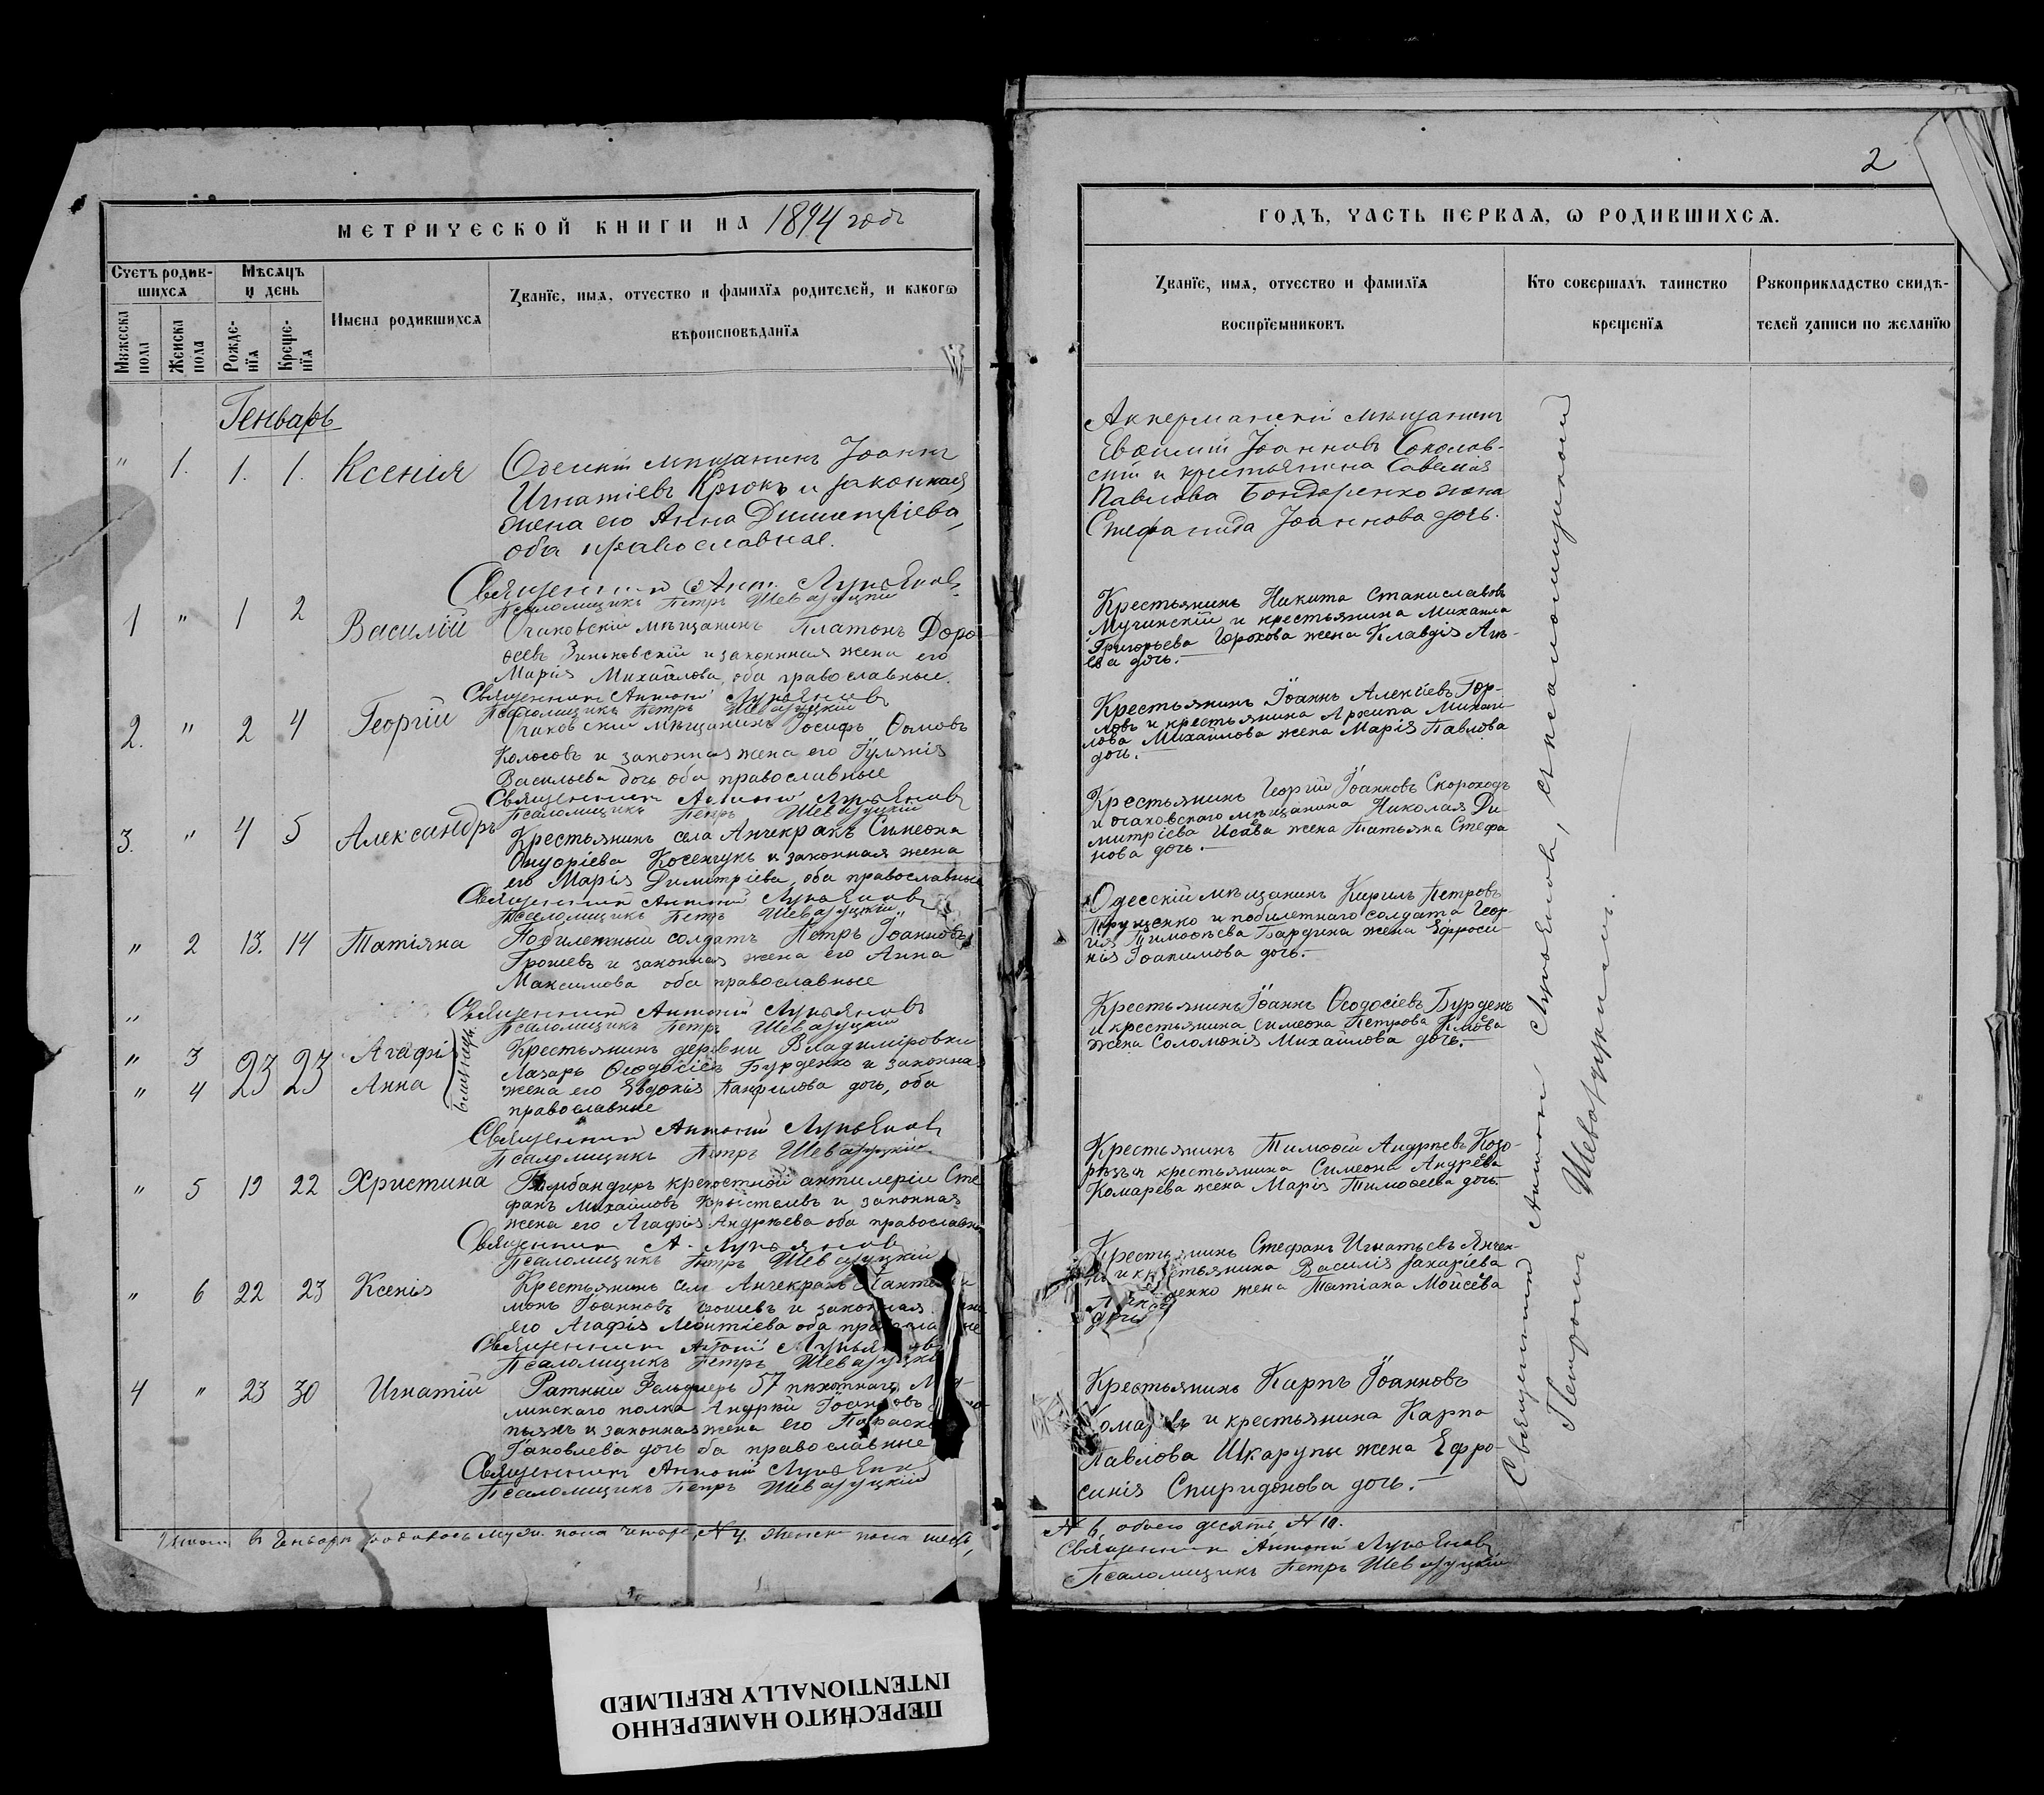 МЕТРИЧЕСКОЙ КНИГИ НА 1894 годъ
Счетъ родившихся
Мѣсяцъ и день
Имена родившихся
Званіе, имя, отчество и фамилія родителей, и какогѡ
вѣроисповѣданія
Мужеска пола
Женска пола
Рожденія
Крещенія
Генварь
" 1. 1. 1. Ксенія
Одескій мѣщанинъ Іоаннъ
Игнатіевъ Крюкъ и законная
жена его Анна Димитріева,
оба православные.
Священникъ Ант. Лукьяновъ
Псаломщикъ Петръ Шеваруцкій
1 " 1 2 Василій
Очаковскій мѣщанинъ Платонъ Доро-
ѳеевъ Зиньковскій и законная жена его
Марія Михайлова, оба православные.
Священникъ Антоній Лукьяновъ
Псаломщикъ Петръ Шеваруцкій
2. " 2 4 Георгій
Очаковскій мѣщанинъ Іосифъ Ѳомовъ
Колосовъ и законная жена его Іуліянія
Васильева дочь оба православные
Священникъ Антоній Лукьяновъ
Псаломщикъ Петръ Шеваруцкій
3. " 4 5 Александръ
Крестьянинъ села Анчекракъ Симеона
Онуфріева Косенчукъ и законная жена
его Марія Димитріева, оба православные
Священникъ Антоній Лукьяновъ
Псаломщикъ Петръ Шеваруцкій
" 2 13. 14 Татіяна
Побилетный солдатъ Петръ Іоанновъ
Грошевъ и законная жена его Анна
Максимова оба православные
"
Священникъ Антоній Лукьяновъ
Псаломщикъ Петръ Шеваруцкій
" 3 23 23 Агафія
" 4 Анна
близнецы
Крестьянинъ деревни Владиміровки
Лазарь Ѳеодосіевъ Бурденко и законная
жена его Евдокія Панфилова дочь, оба
православные
Священникъ Антоній Лукьяновъ
Псаломщикъ Петръ Шеваруцкій
" 5 19 22 Христина
крепостной антилеріи Сте
фанъ Михайловъ и законная
жена его Агафія Андрѣева оба православные
Священникъ А. Лукьяновъ
Псаломщикъ Петръ Шеваруцкій
" 6 22 23 Ксенія
Крестьянинъ села Анчекракъ
монъ Іоанновъ и законная
его Агафія Леонтіева оба
Священникъ Антоній Лукьяновъ
Псаломщикъ Петръ Шеваруцкій
4 " 23 30 Игнатій
Ратный Фельдшеръ 57 пѣхотнаго
линскаго полка Андрей Іоанновъ
и законная жена его
Іаковлева дочь оба православные
Священникъ Антоній Лукьяновъ
Псаломщикъ Петръ Шеваруцкій
въ Генварѣ родилось муж. пола четыре, № 4, женска пола шесть,
2
ГОДЪ, ЧАСТЬ ПЕРВАЯ, Ѡ РОДИВШИХСЯ.
Званіе, имя, отчество и фамилія
воспріемниковъ
Кто совершалъ таинство
крещенія
Рукоприкладство свидѣ-
телей записи по желанію
Аккерманскій мѣщанинъ
Евѳимій Іоанновъ Соколов-
скій и крестьянина Савелія
Павлова Бондаренко жена
Стефанида Іоаннова дочь.
Крестьянинъ Никита Станиславовъ
Мучинскій и крестьянина Михаила
Григорьева Горохова жена Клавдія Агѣ-
ева дочь.
Крестьянинъ Іоаннъ Алексіевъ Гор-
ловъ и крестьянина Архипа Михай-
лова Михайлова жена Марія Павлова
дочь.
Крестьянинъ Георгій Іоанновъ Скороходъ
и очаковскаго мѣщанина Николая Ди-
митріева Исаева жена Татьяна Стефа
нова дочь.
Одесскій мѣщанинъ Кирилъ Петровъ
и побилетнаго солдата Геор-
гія Тимоѳѣева Бардина жена Ефроси-
нія Іоакимова дочь.
Крестьянинъ Іоаннъ Ѳеодосіевъ Бурденъ
и крестьянина Симеона Петрова
жена Соломонія Михайлова дочь.
Крестьянинъ Тимоѳей Андрѣевъ Козо-
рѣзъ и крестьянина Симеона Андрѣева
Комарева жена Марія Тимоѳеева дочь
Крестьянинъ Стефанъ Игнатьевъ Янчен-
Василія Захаріева
жена Татіана Моисеева
дочь
Крестьянинъ Карпъ Іоанновъ
и крестьянина Карпа
Павлова Шкарупы жена Ефро-
синія Спиридонова дочь.
Священникъ Антоній Лукьяновъ, съ псаломщикомъ
Петромъ Шеваруцкимъ.
№ 6, обоего десять № 10.
Священникъ Антоній Лукьяновъ
Псаломщикъ Петръ Шеваруцкій
ПЕРЕСНЯТО НАМЕРЕННО
INTENTIONALLY REFILMED